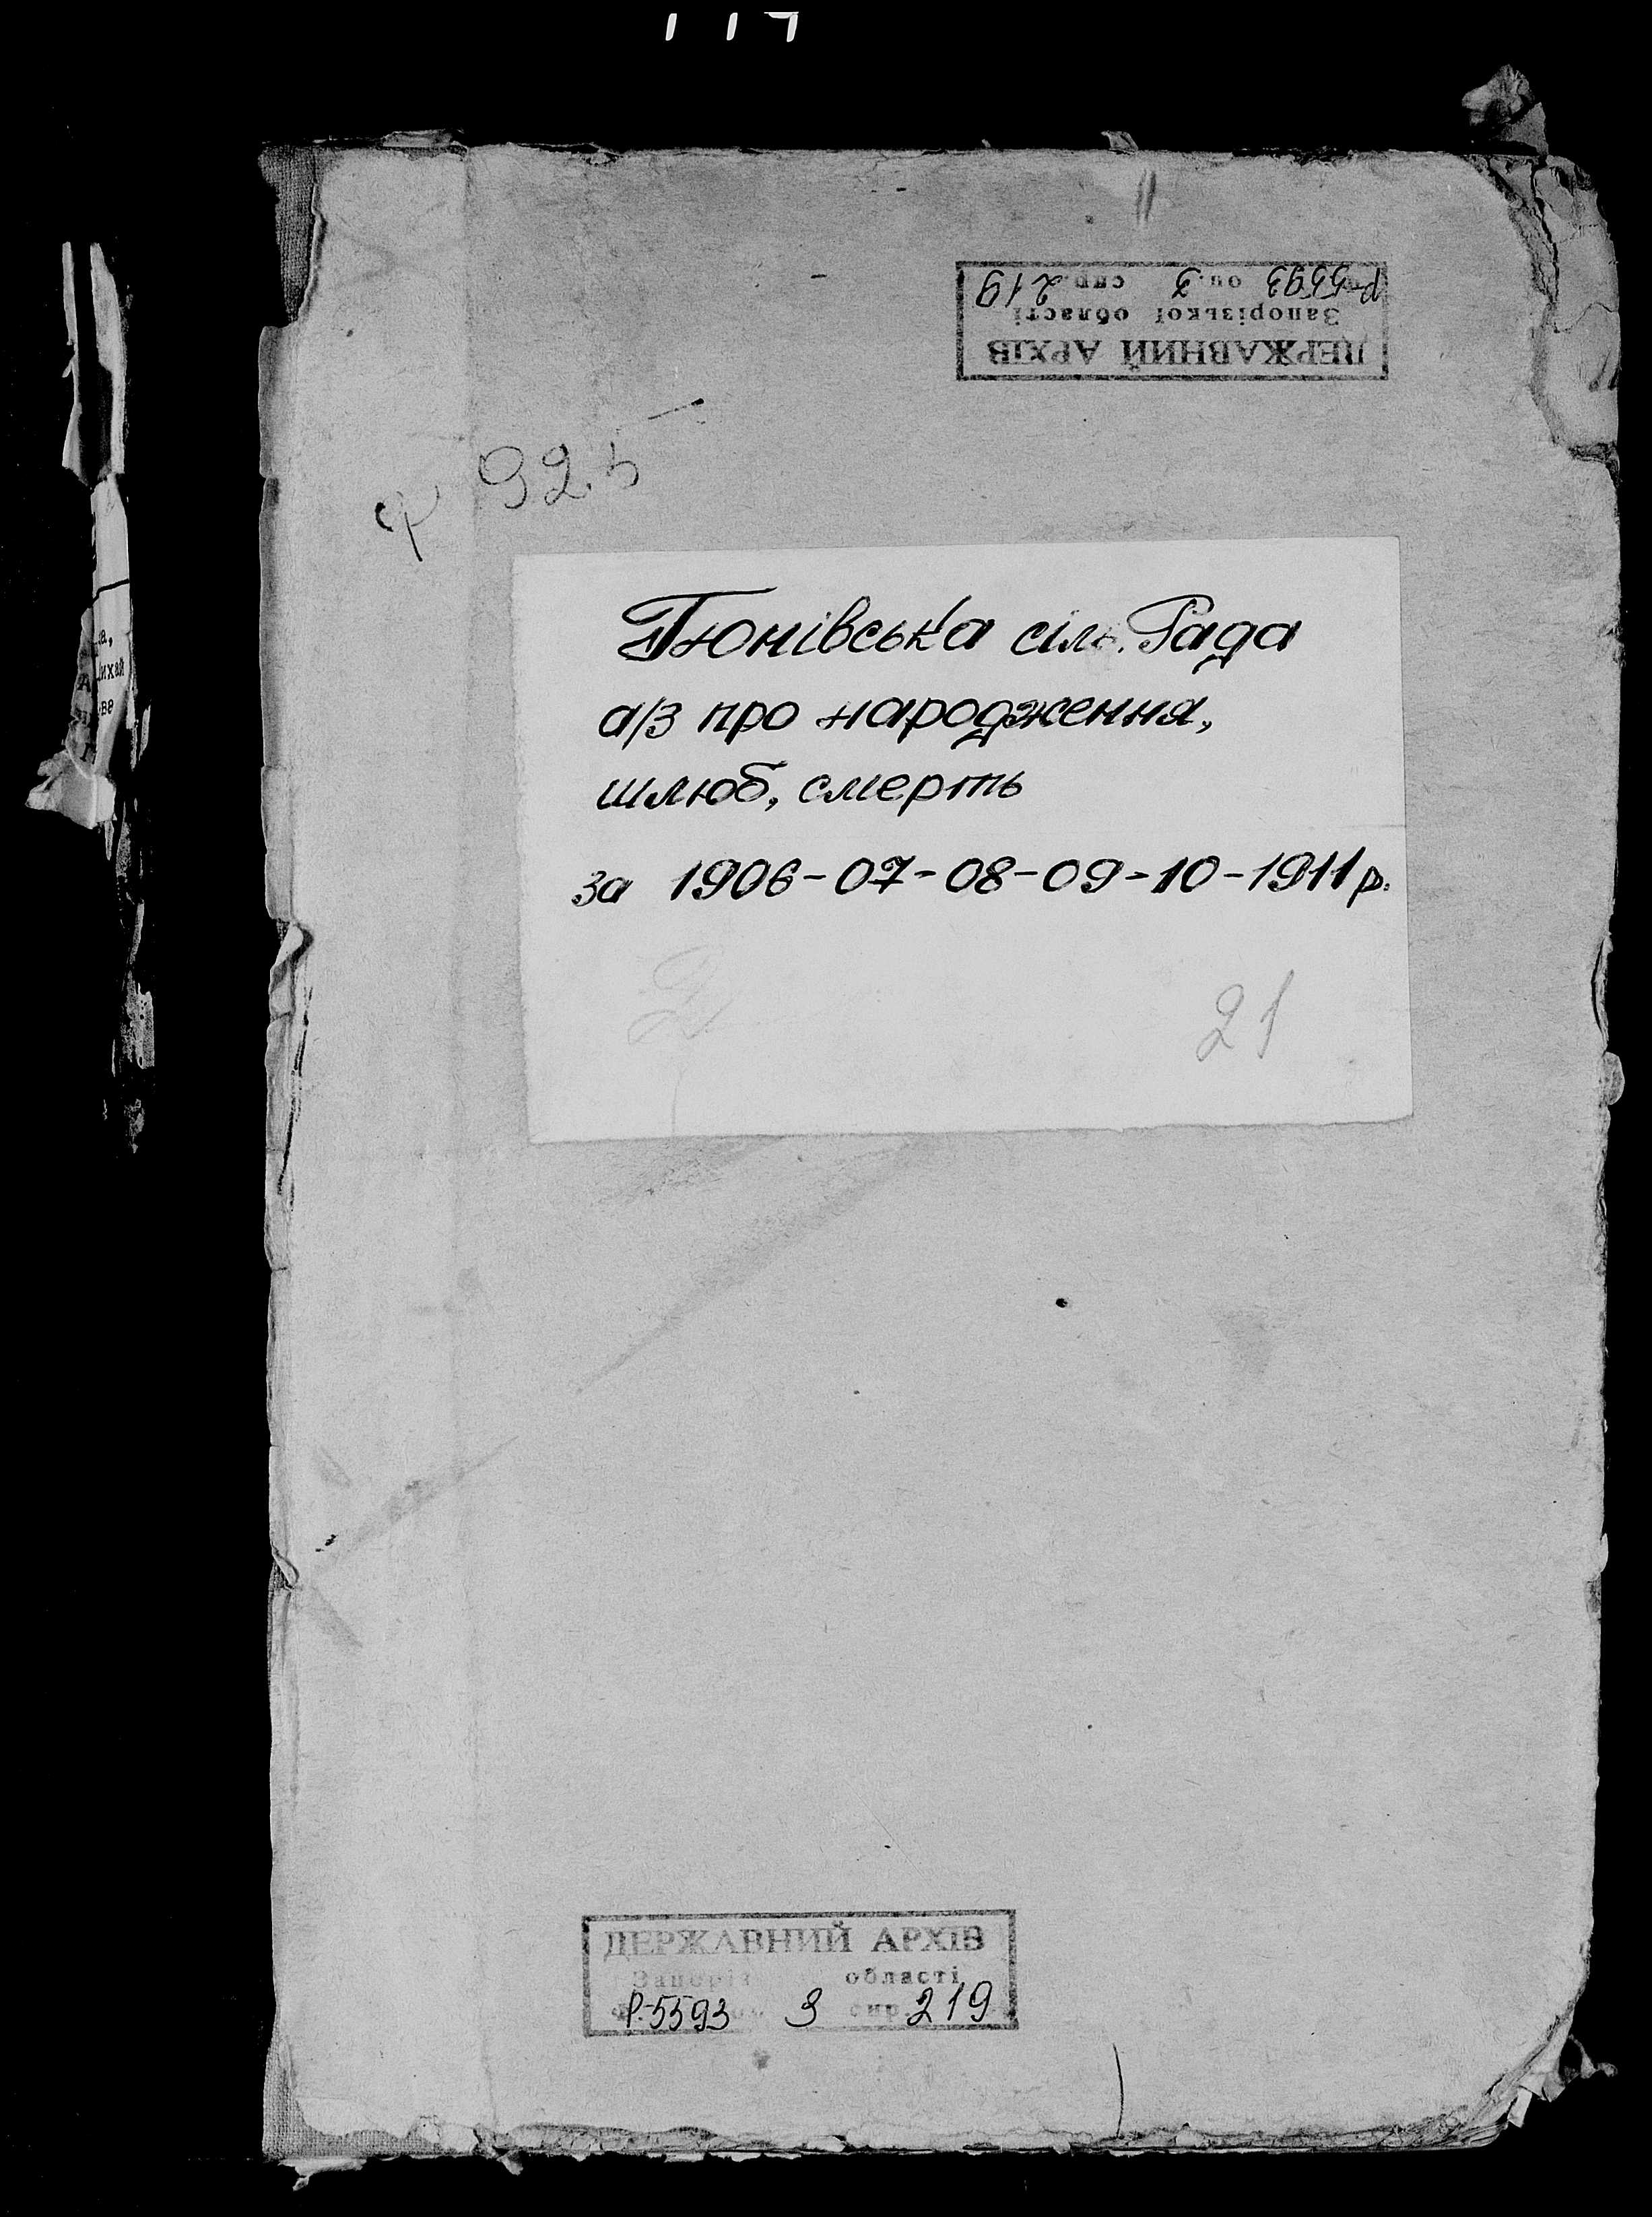 ДЕРЖАВНИЙ АРХІВ
Запорізької області
Р-5593 оп. 3 спр. 219
ф 925
Гюнівська сіль. Рада
а/з про народження,
шлюб, смерть
за 1906-07-08-09-10-1911 р.
21
ДЕРЖАВНИЙ АРХІВ
Запоріз області
Р-5593 3 спр. 219